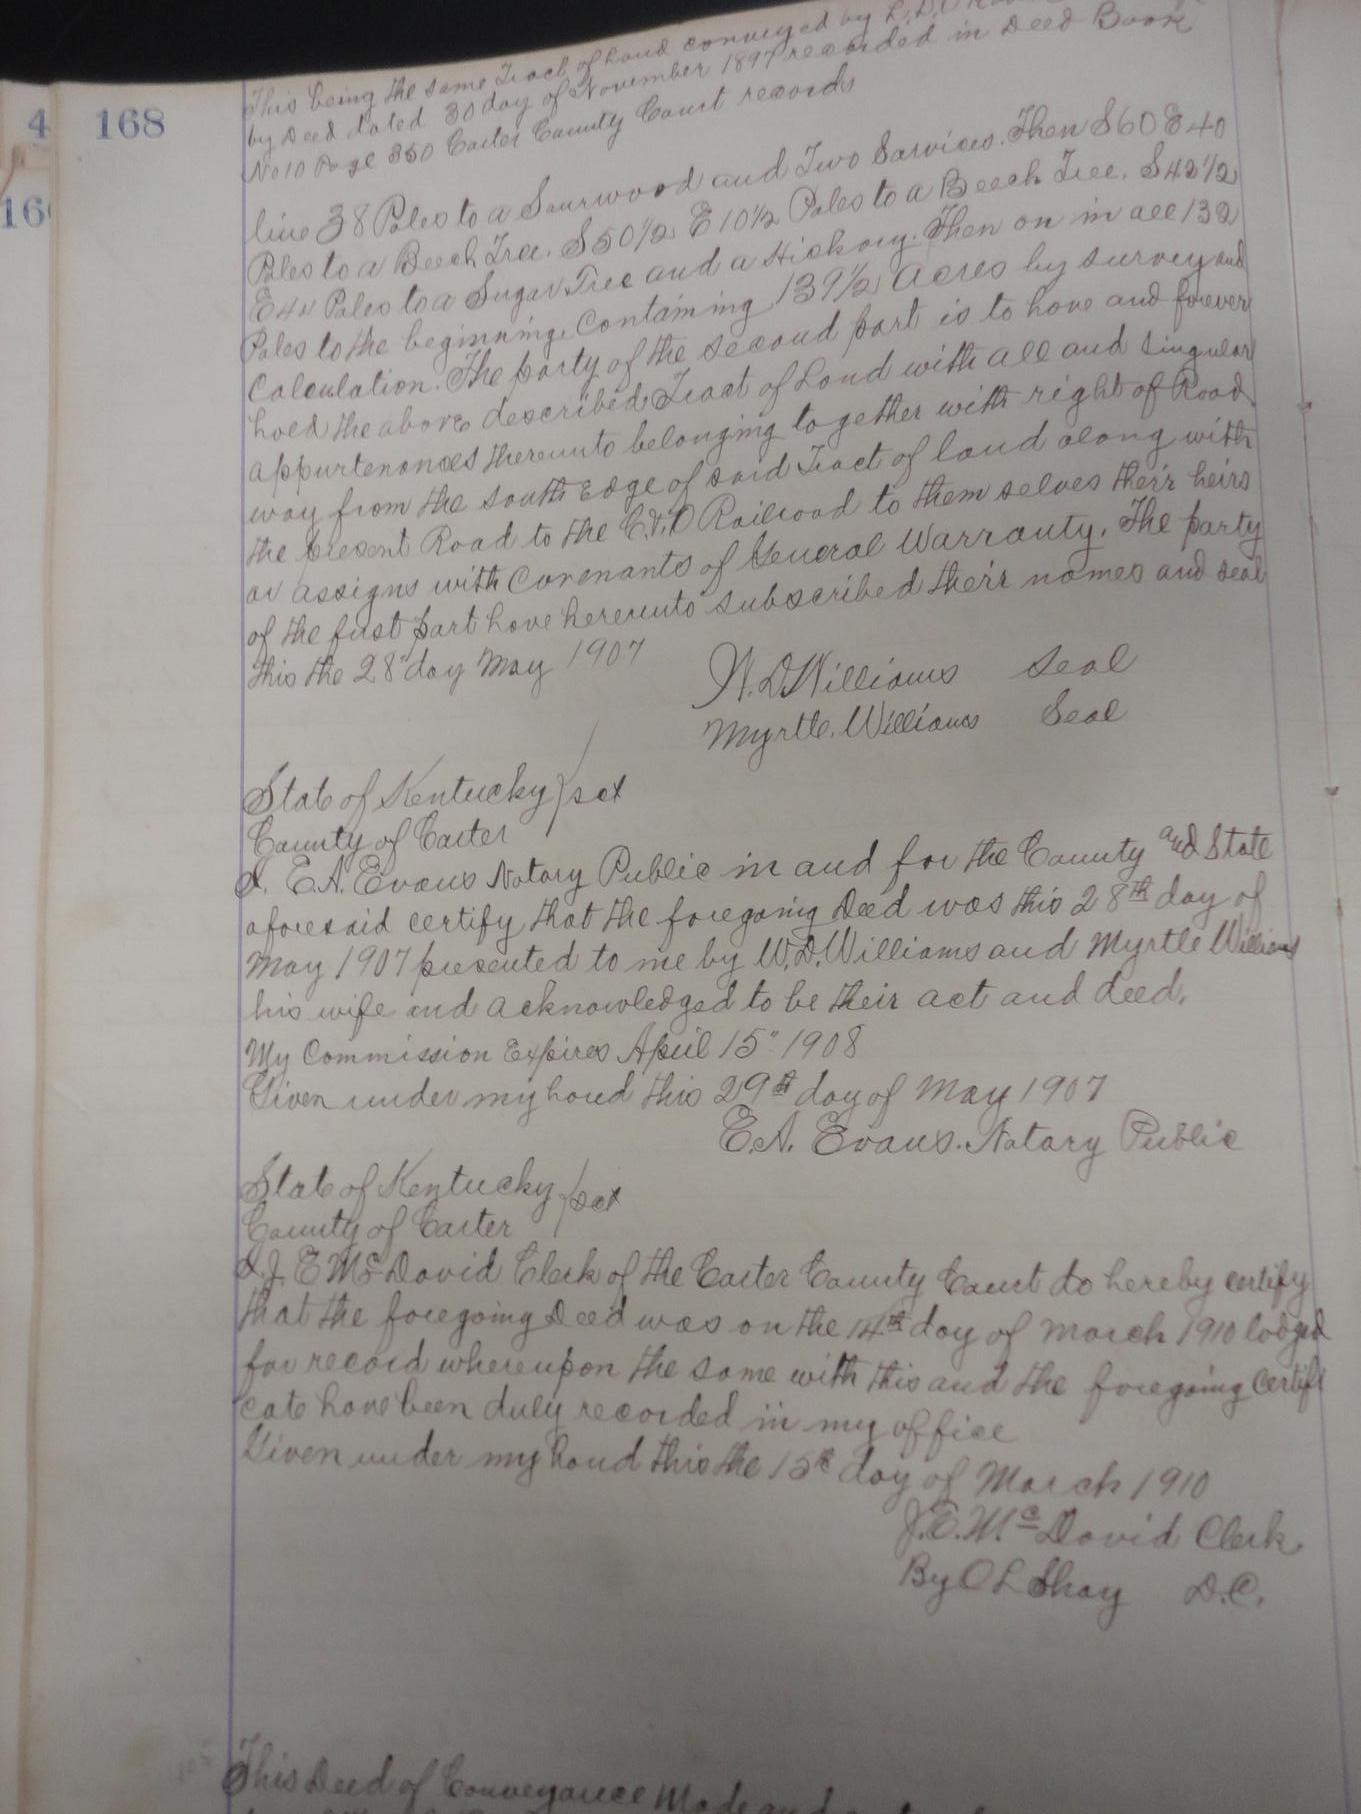 This being the same Tract of Land conveyed by L.D.
by Deed dated 30 day of November 1897 recorded in Deed Book
No 10 Page 350 Carter County Court records
4
168
16
line 38 Poles to a Sourwood and Two Sarvices. Then S60 E 40
Poles to a Beech Tree. S50 1/2 E 10 1/2 Poles to a Beech Tree. S42 1/2
E 44 Poles to a Sugar Tree and a Hickory. Then on in all 132
Poles to the beginning. Containing 139 1/2 acres by survey and
Calculation. The party of the second part is to have and forever
hold the above described Tract of Land with all and singular
appurtenances thereunto belonging together with right of Road
way from the south Edge of said Tract of land along with
the present Road to the C.&O Railroad to them selves their heirs
or assigns with Covenants of General Warranty. The party
of the first part have hereunto subscribed their names and seal
this the 28" day May 1907
W. D. Williams Seal
Myrtle. Williams Seal
State of Kentucky } sct
County of Carter
I. E.A. Evans Notary Public in and for the County and State
aforesaid certify that the foregoing Deed was this 28th day of
May 1907 presented to me by W.D. Williams and Myrtle Williams
his wife and acknowledged to be their act and deed.
My Commission Expires April 15" 1908
Given under my hand this 29th day of May 1907
E.A. Evans. Notary Public
State of Kentucky } sct
County of Carter
I. J. E McDavid Clerk of the Carter County Court do hereby certify
that the foregoing Deed was on the 14th day of March 1910 lodged
for record whereupon the same with this and the foregoing certifi
cate have been duly recorded in my office
Given under my hand this the 15th day of March 1910
J.E. McDavid Clerk
By O L Shay D.C.
This Deed of Conveyance Made and